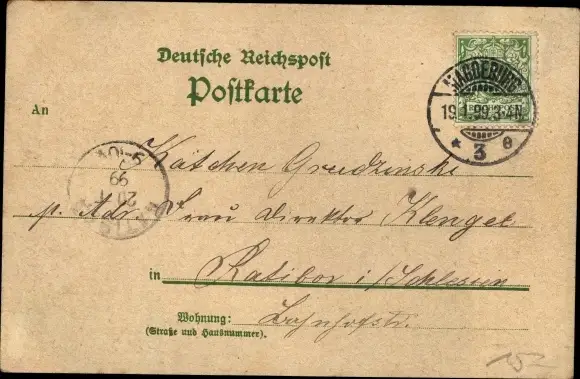 Deutsche Reichspost
Postkarte
An
MAGDEBURG
19.1.99.3-4N
* 3 e
20 1
99
Kätchen Grudzinski
p. Adr. Frau Direktor Klengel
in Ratibor i/Schlesien
Wohnung: Bahnhofstr.
(Straße und Hausnummer).
152